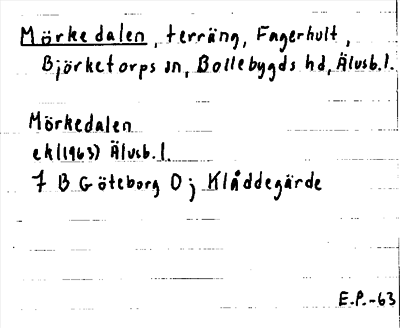 Mörkedalen, terräng, Fagerhult,
Björketorps sn, Bollebygds hd, Älvsb.l.
Mörkedalen
ek(1963) Älvsb.l.
7 B Göteborg O; Klåddegärde
E.P.-63